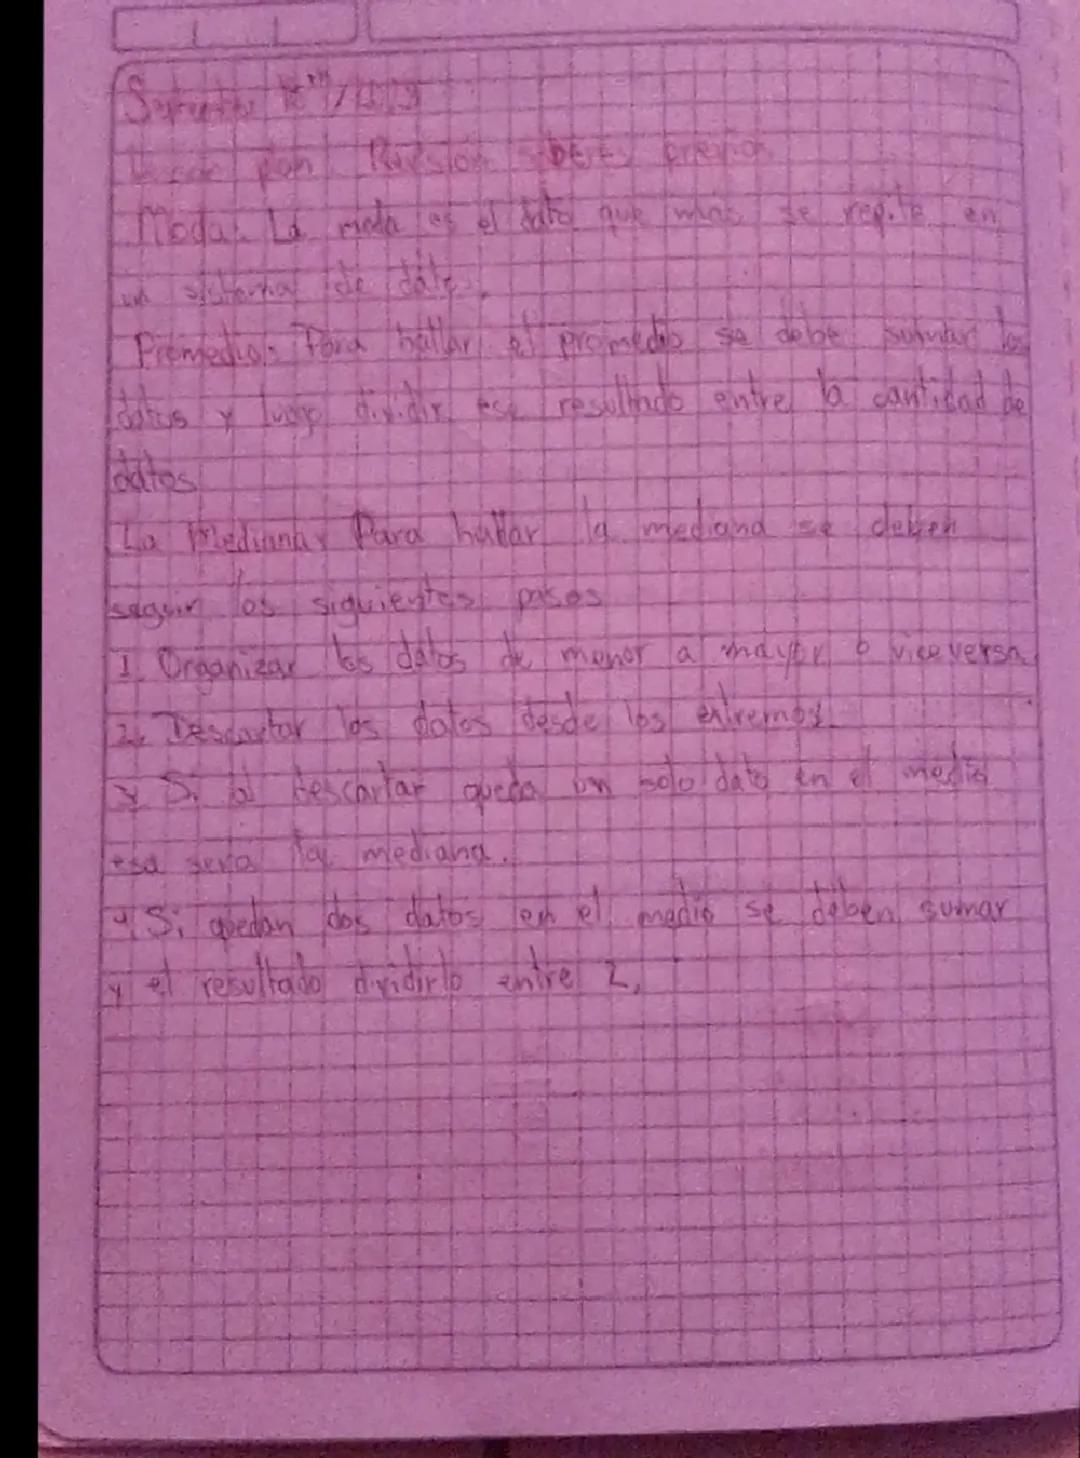 Septiembre
Revision saberes previos
Moda: La moda es el dato que más se repite en
un sistema de datos.
Promedio: Para hallar el promedio se debe sumar los
datos y luego dividir ese resultado entre la cantidad de
datos
La Mediana: Para hallar la mediana se deben
seguir los siguientes pasos
1. Organizar los datos de menor a mayor o viceversa
2. Descartar los datos desde los extremos
3 Si al descartar queda un solo dato en el medio
esa sera la mediana.
4. Si quedan dos datos en el medio se deben sumar
y el resultado dividirlo entre 2.